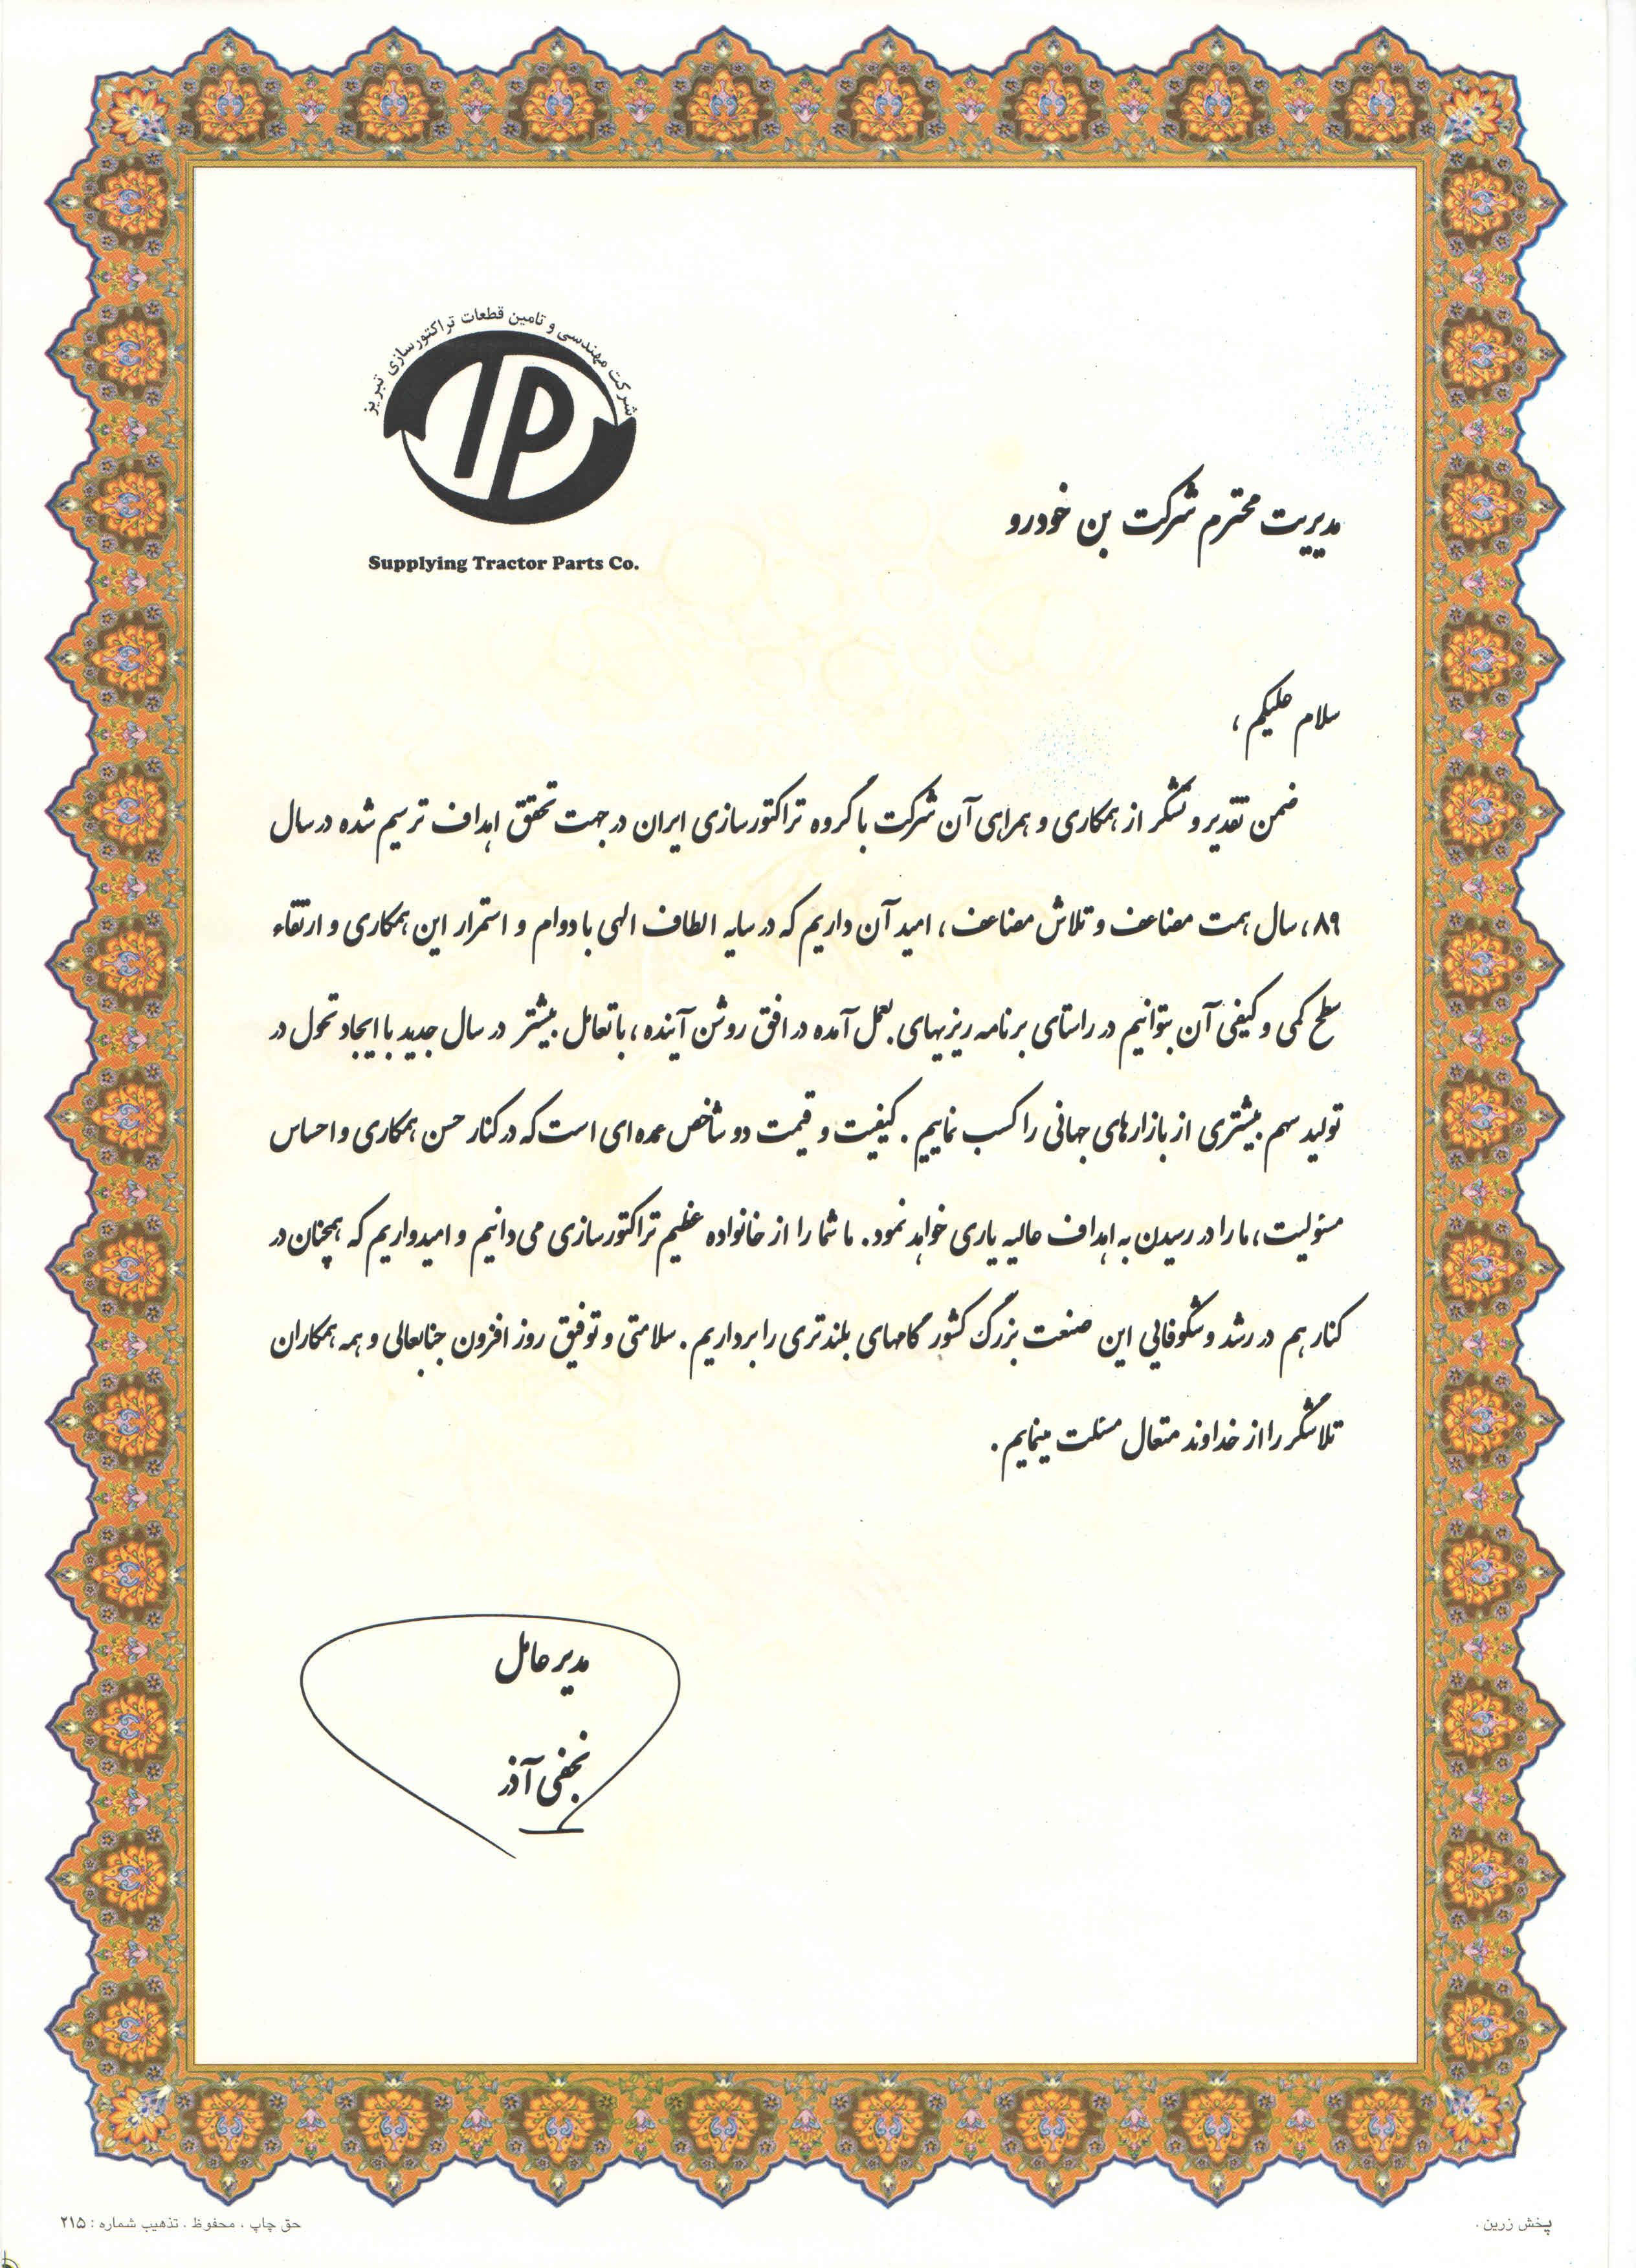 شرکت مهندسی و تامین قطعات تراکتورسازی تبریز
TP
Supplying Tractor Parts Co.
مدیریت محترم شرکت بن خودرو
سلام علیکم ،
ضمن تقدیر و تشکر از همکاری و همراهی آن شرکت با گروه تراکتورسازی ایران در جهت تحقق اهداف ترسیم شده در سال
۸۹ ، سال همت مضاعف و تلاش مضاعف ، امید آن داریم که در سایه الطاف الهی با دوام و استمرار این همکاری و ارتقاء
سطح کمی و کیفی آن بتوانیم در راستای برنامه ریزیهای بعمل آمده در افق روشن آینده ، با تعامل بیشتر در سال جدید با ایجاد تحول در
تولید سهم بیشتری از بازارهای جهانی را کسب نماییم . کیفیت و قیمت دو شاخص عمده ای است که در کنار حسن همکاری و احساس
مسئولیت ، ما را در رسیدن به اهداف عالیه یاری خواهد نمود . ما شما را از خانواده عظیم تراکتورسازی می دانیم و امیدواریم که همچنان در
کنار هم در رشد و شکوفایی این صنعت بزرگ کشور گامهای بلندتری را برداریم . سلامتی و توفیق روز افزون جنابعالی و همه همکاران
تلاشگر را از خداوند متعال مسئلت مینمایم .
مدیر عامل
نجفی آذر
پخش زرین .
حق چاپ ، محفوظ . تذهیب شماره : ۲۱۵